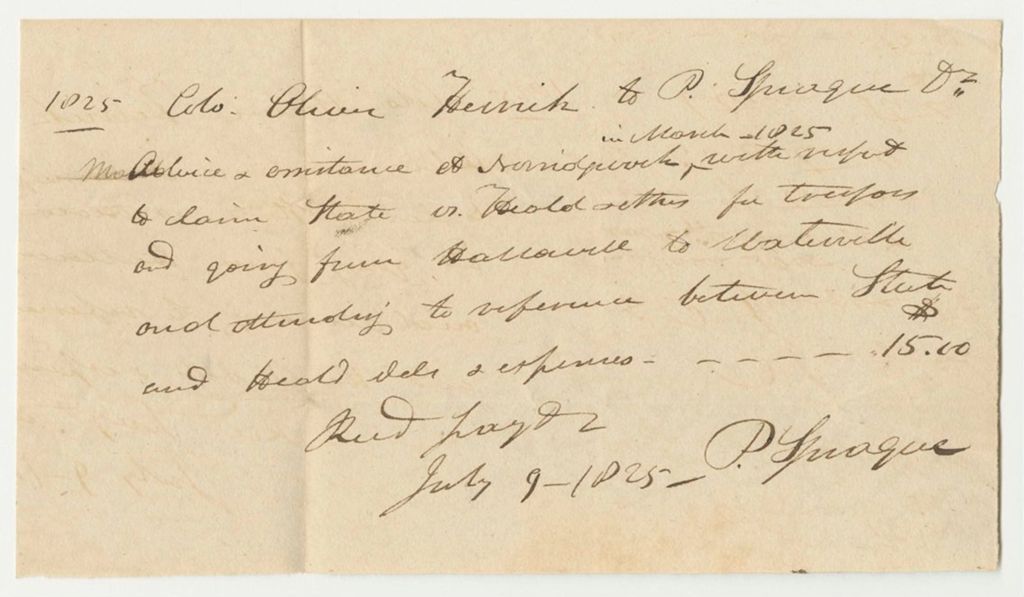 1825 Colo. Oliver Herrick to P. Sprague Dr.
in March 1825
Advice & assistance at Norridgwock, with respect
to claim State vs. Heald & others for trespass
and going from Hallowell to Waterville
and attending to reference between State
and Heald & als & expenses - - - - - $15.00
Recd payt
July 9 - 1825 - P. Sprague